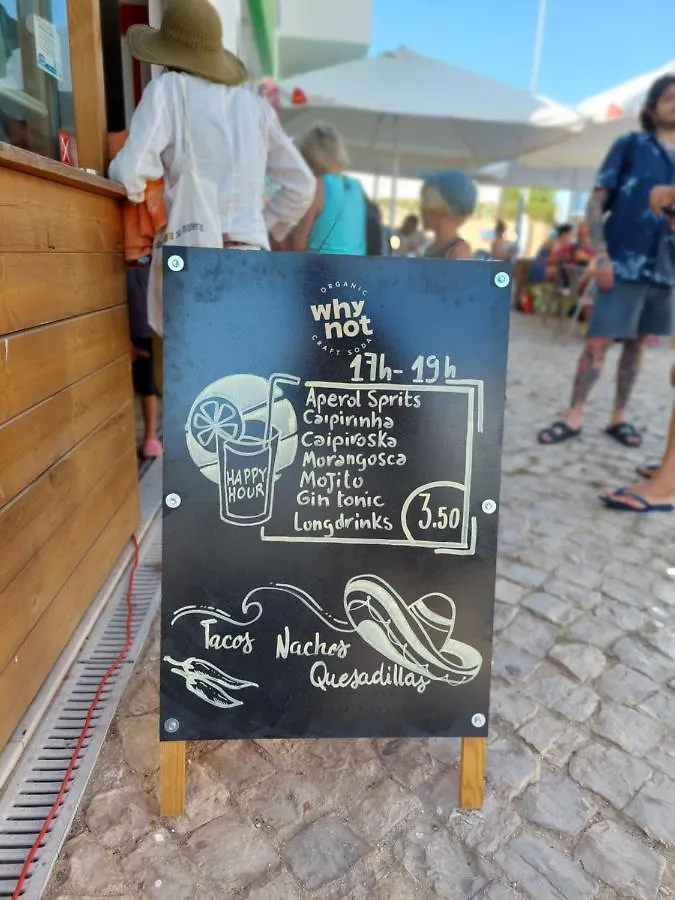 ORGANIC
why
not
CRAFT SODA
17h-19h
Aperol Sprits
Caipirinha
Caipiroska
Morangosca
Mojito
Gin tonic
Longdrinks
HAPPY
HOUR
3.50
Tacos
Nachos
Quesadillas